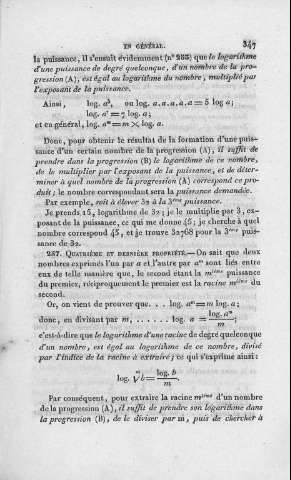 EN GÉNÉRAL. 347
la puissance, il s'ensuit évidemment (n° 285) que le logarithme
d'une puissance de degré quelconque, d'un nombre de la pro-
gression (A), est égal au logarithme du nombre, multiplié par
l'exposant de la puissance.
Ainsi, log. a⁵, ou log. a.a.a.a.a = 5 log a;
log. a⁷ = 7 log. a;
et en général, log. aᵐ = m × log. a.
Donc, pour obtenir le résultat de la formation d'une puis-
sance d'un certain nombre de la progression (A), il suffit de
prendre dans la progression (B) le logarithme de ce nombre,
de le multiplier par l'exposant de la puissance, et de déter-
miner à quel nombre de la progression (A) correspond ce pro-
duit; le nombre correspondant sera la puissance demandée.
Par exemple, soit à élever 32 à la 3ᵐᵉ puissance.
Je prends 15, logarithme de 32; je le multiplie par 3, ex-
posant de la puissance, ce qui me donne 45; je cherche à quel
nombre correspond 45, et je trouve 32768 pour la 3ᵐᵉ puis-
sance de 32.
287. QUATRIÈME ET DERNIÈRE PROPRIÉTÉ.—On sait que deux
nombres exprimés l'un par a et l'autre par aᵐ sont liés entre
eux de telle manière que, le second étant la mⁱᵉᵐᵉ puissance
du premier, réciproquement le premier est la racine mⁱᵉᵐᵉ du
second.
Or, on vient de prouver que. . . log. aᵐ = m log. a;
donc, en divisant par m, . . . . . . . log. a = log. aᵐ / m;
c'est-à-dire que le logarithme d'une racine de degré quelconque
d'un nombre, est égal au logarithme de ce nombre, divisé
par l'indice de la racine à extraire; ce qui s'exprime ainsi:
log. ᵐ√b = log. b / m.
Par conséquent, pour extraire la racine mⁱᵉᵐᵉ d'un nombre
de la progression (A), il suffit de prendre son logarithme dans
la progression (B), de le diviser par m, puis de chercher à